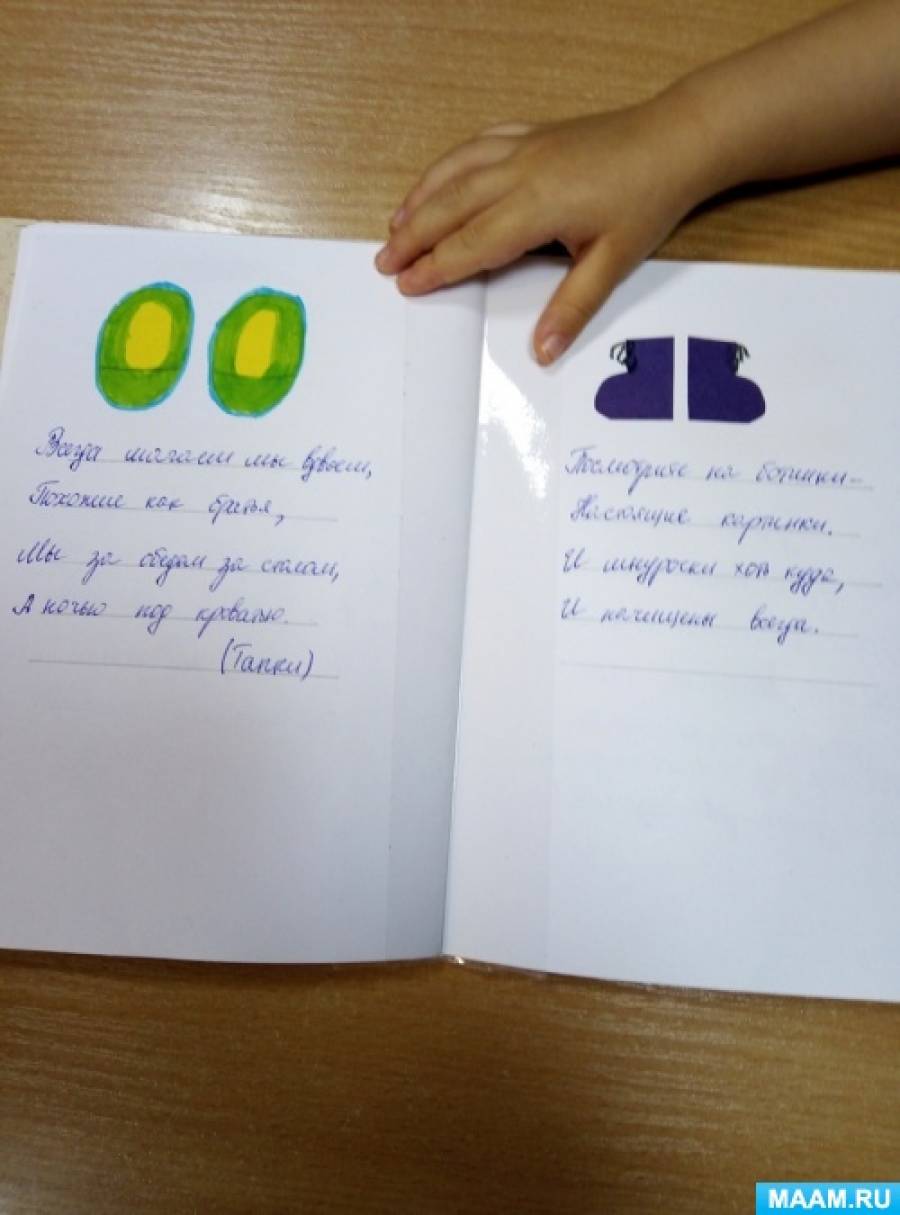 Всегда шагаем мы вдвоем,
Похожие как братья,
Мы за обедом за столом,
А ночью под кроватью.
(Тапки)
Посмотрите на ботинки-
Настоящие картинки.
И шнуроски хоть куда,
И начищены всегда.
MAAM.RU